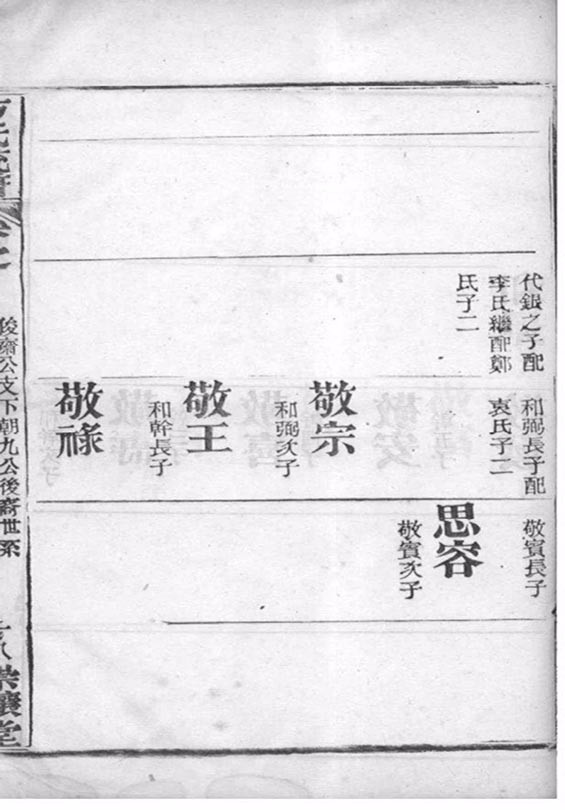 代銀之子配
李氏繼配鄭
氏子二
和弼長子配
袁氏子二
敬宗
和弼次子
敬王
和幹長子
敬祿
敬賓長子
思容
敬賓次子
俊齋公支下朝九公後裔世系